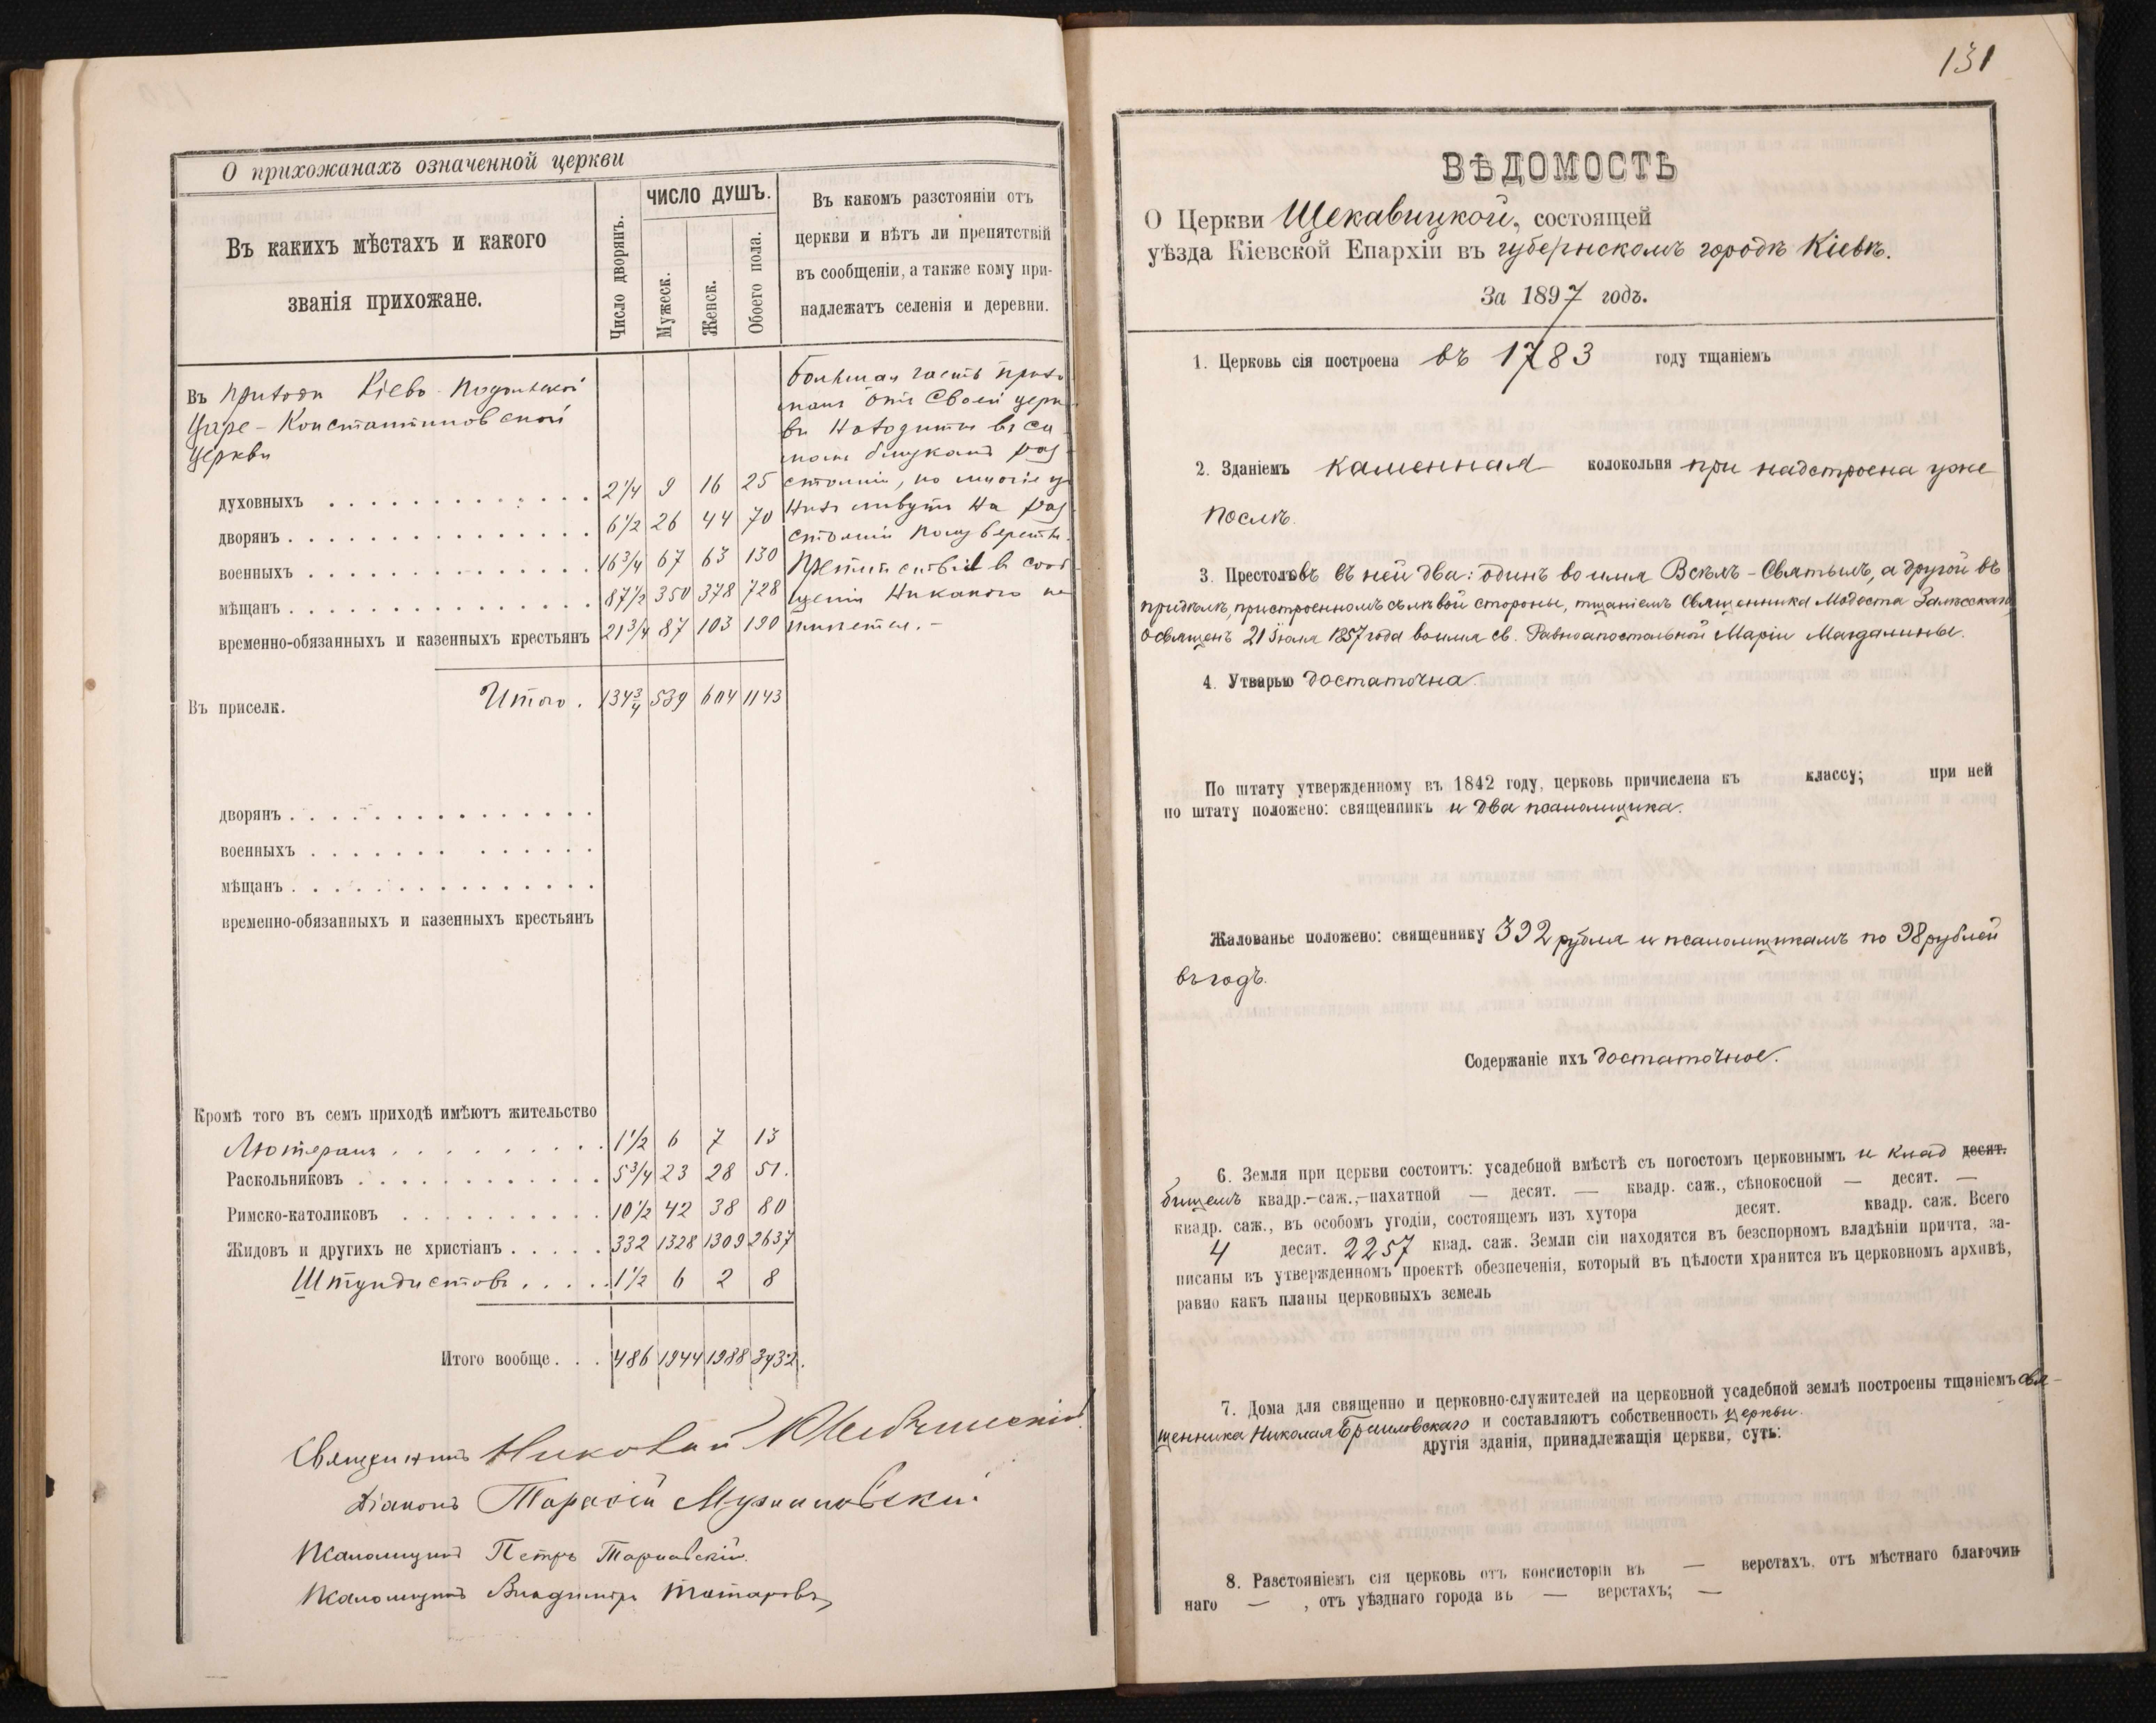 О прихожанахъ означенной церкви
Въ какихъ мѣстахъ и какого
званія прихожане.
Число дворянъ.
ЧИСЛО ДУШЪ.
Мужеск.
Женск.
Обоего пола.
Въ какомъ разстояніи отъ
церкви и нѣтъ ли препятствій
въ сообщеніи, а также кому при-
надлежатъ селенія и деревни.
Въ приходѣ Кіево-Подольской
Царе-Константиновской
церкви
Большая часть прихо
жанъ отъ своей церк
ви находится въ са
момъ близкомъ раз
стояніи, но многіе из
нихъ живутъ на раз
стояніи полуверсты.
Препятствій въ сооб
щеніи никакого не
имѣется. -
духовныхъ 2 1/4 9 16 25
дворянъ 6 1/2 26 44 70
военныхъ 16 3/4 67 63 130
мѣщанъ 87 1/2 350 378 728
временно-обязанныхъ и казенныхъ крестьянъ 21 3/4 87 103 190
Въ приселк. Итого. 134 3/4 539 604 1143
дворянъ
военныхъ
мѣщанъ
временно-обязанныхъ и казенныхъ крестьянъ
Кромѣ того въ семъ приходѣ имѣютъ жительство
Лютеранъ 1 1/2 6 7 13
Раскольниковъ 5 3/4 23 28 51.
Римско-католиковъ 10 1/2 42 38 80
Жидовъ и другихъ не христіанъ 332 1328 1309 2637
Штундистовъ 1 1/2 6 2 8
Итого вообще. . . 486 1944 1988 3932.
Священникъ Николай
Діаконъ Тарасій
Псаломщикъ Петръ Тарнавскій.
Псаломщикъ Владиміръ Татаровъ
131
ВѢДОМОСТЬ
О Церкви Щекавицкой, состоящей
уѣзда Кіевской Епархіи въ губернскомъ городѣ Кіевѣ.
За 1897 годъ.
1. Церковь сія построена въ 1783 году тщаніемъ
2. Зданіемъ каменная колокольня при надстроена уже
послѣ.
3. Престоловъ въ ней два: одинъ во имя Всѣхъ-Святыхъ, а другой въ
придѣлѣ, пристроенномъ съ лѣвой стороны, тщаніемъ Священника Модеста Залѣсскаго
освященъ 21 Іюля 1857 года во имя св. Равноапостольной Маріи Магдалины.
4. Утварью достаточна.
По штату утвержденному въ 1842 году, церковь причислена къ классу; при ней
по штату положено: священникъ и два псаломщика.
Жалованье положено: священнику 392 рубля и псаломщикамъ по 98 рублей
въ годъ.
Содержаніе ихъ достаточное.
6. Земля при церкви состоитъ: усадебной вмѣстѣ съ погостомъ церковнымъ и клад десят.
бищемъ квадр.-саж.,-пахатной — десят. — квадр. саж., сѣнокосной — десят. —
квадр. саж., въ особомъ угодіи, состоящемъ изъ хутора десят. квадр. саж. Всего
4 десят. 2257 квад. саж. Земли сіи находятся въ безспорномъ владѣніи причта, за-
писаны въ утвержденномъ проектѣ обезпеченія, который въ цѣлости хранится въ церковномъ архивѣ,
равно какъ планы церковныхъ земель
7. Дома для священно и церковно-служителей на церковной усадебной землѣ построены тщаніемъ свя-
щенника Николая Браиловскаго и составляютъ собственность церкви.
другія зданія, принадлежащія церкви, суть:
8. Разстояніемъ сія церковь отъ консисторіи въ — верстахъ, отъ мѣстнаго благочин
наго — , отъ уѣзднаго города въ — верстахъ; —